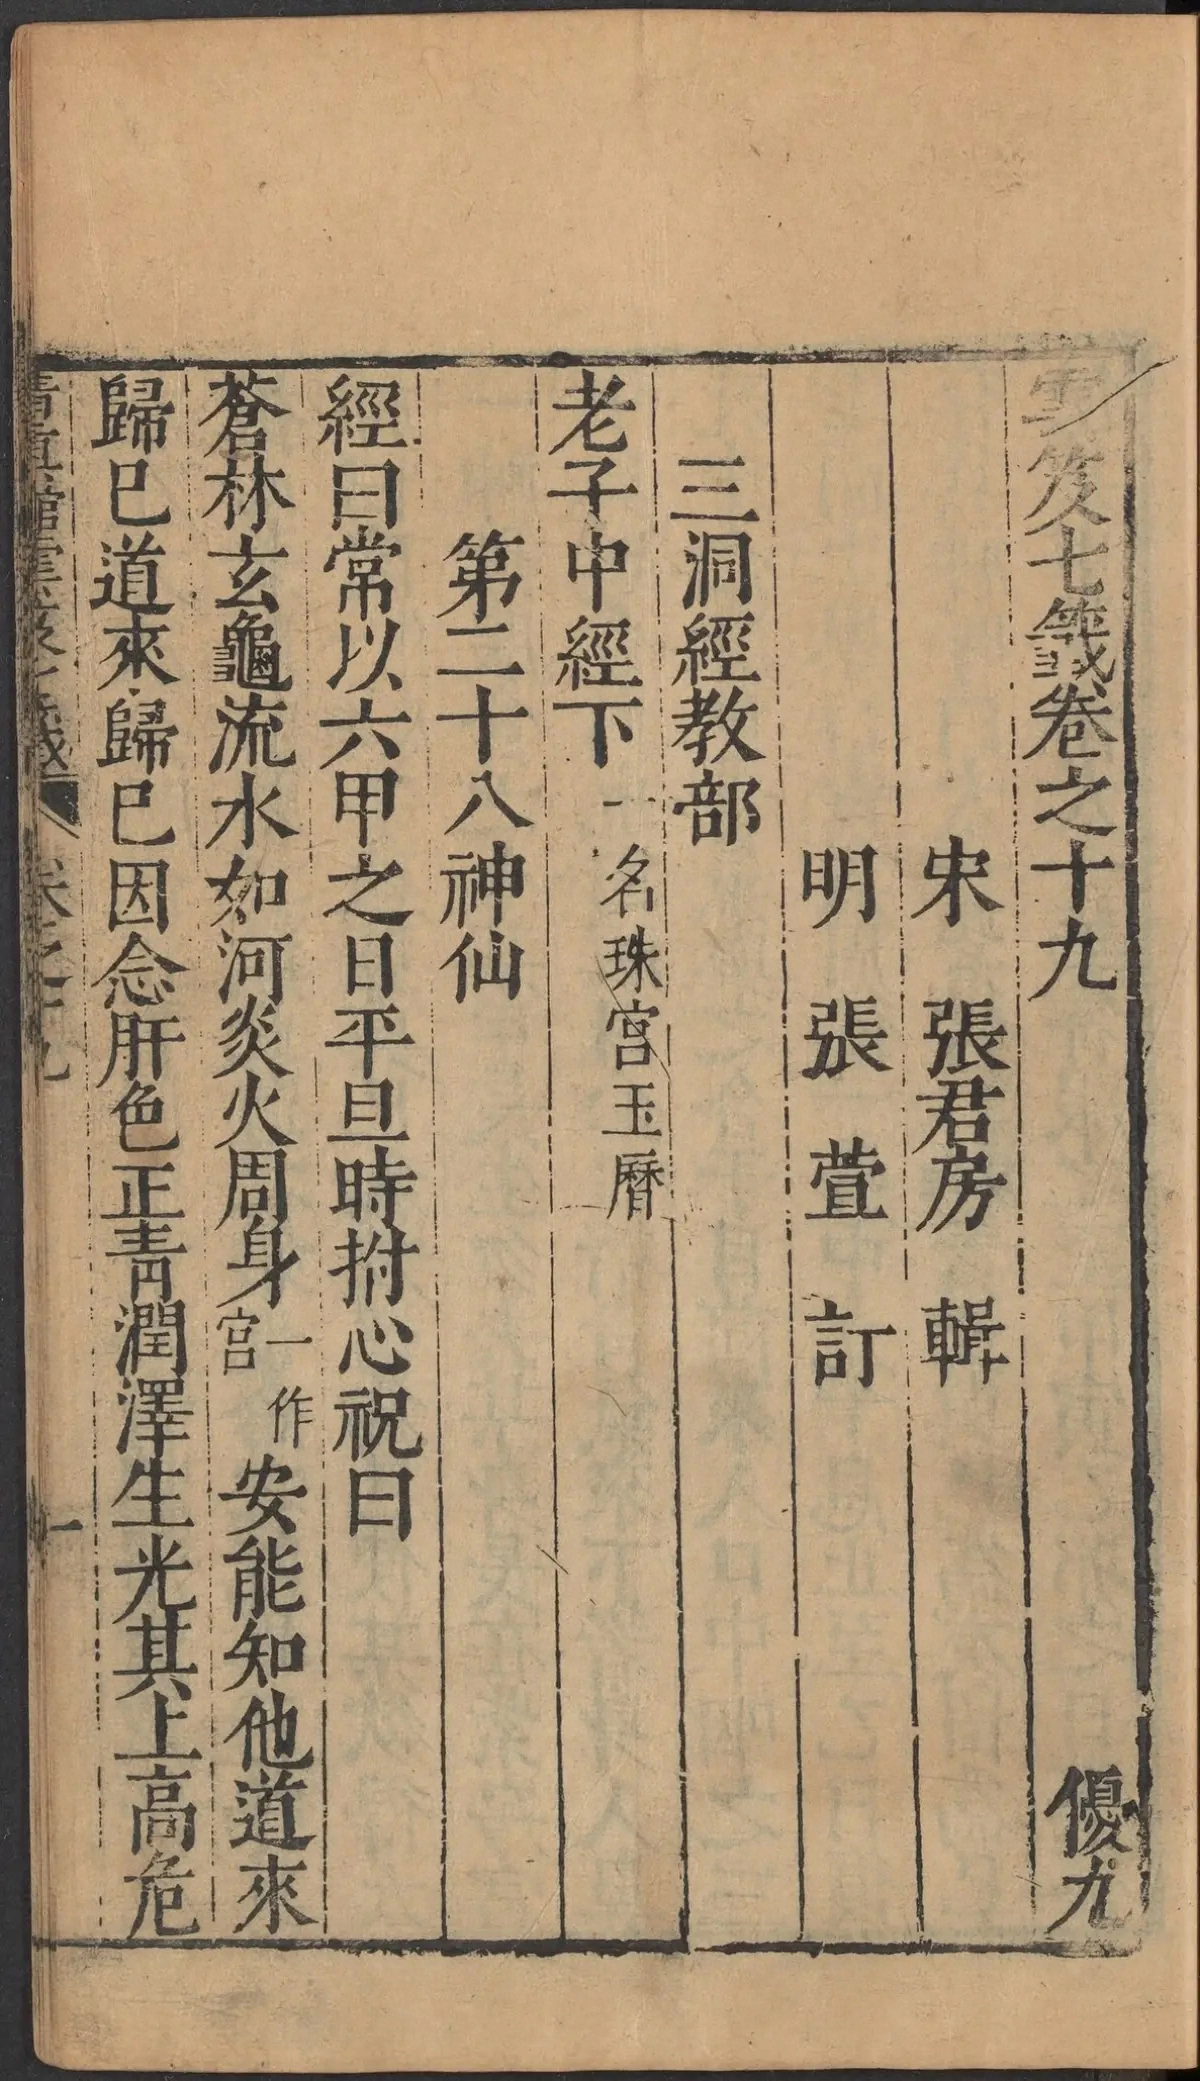 雲笈七籤卷之十九 優九
宋 張君房 輯
明 張 萱 訂
三洞經教部
老子中經下 一名珠宮玉曆
第二十八神仙
經曰常以六甲之日平旦時拊心祝曰
蒼林玄龜流水如河炎火周身一作宮安能知他道來
歸巳道來歸巳因念肝色正青潤澤生光其上高危
清真館雲笈七籤 卷之十九 一